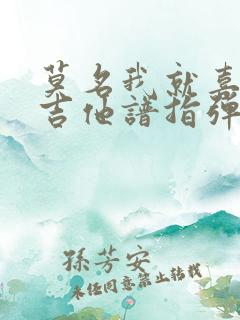 莫名我就嘉
吉他譜指彈
孫芳安
未经同意禁止转载